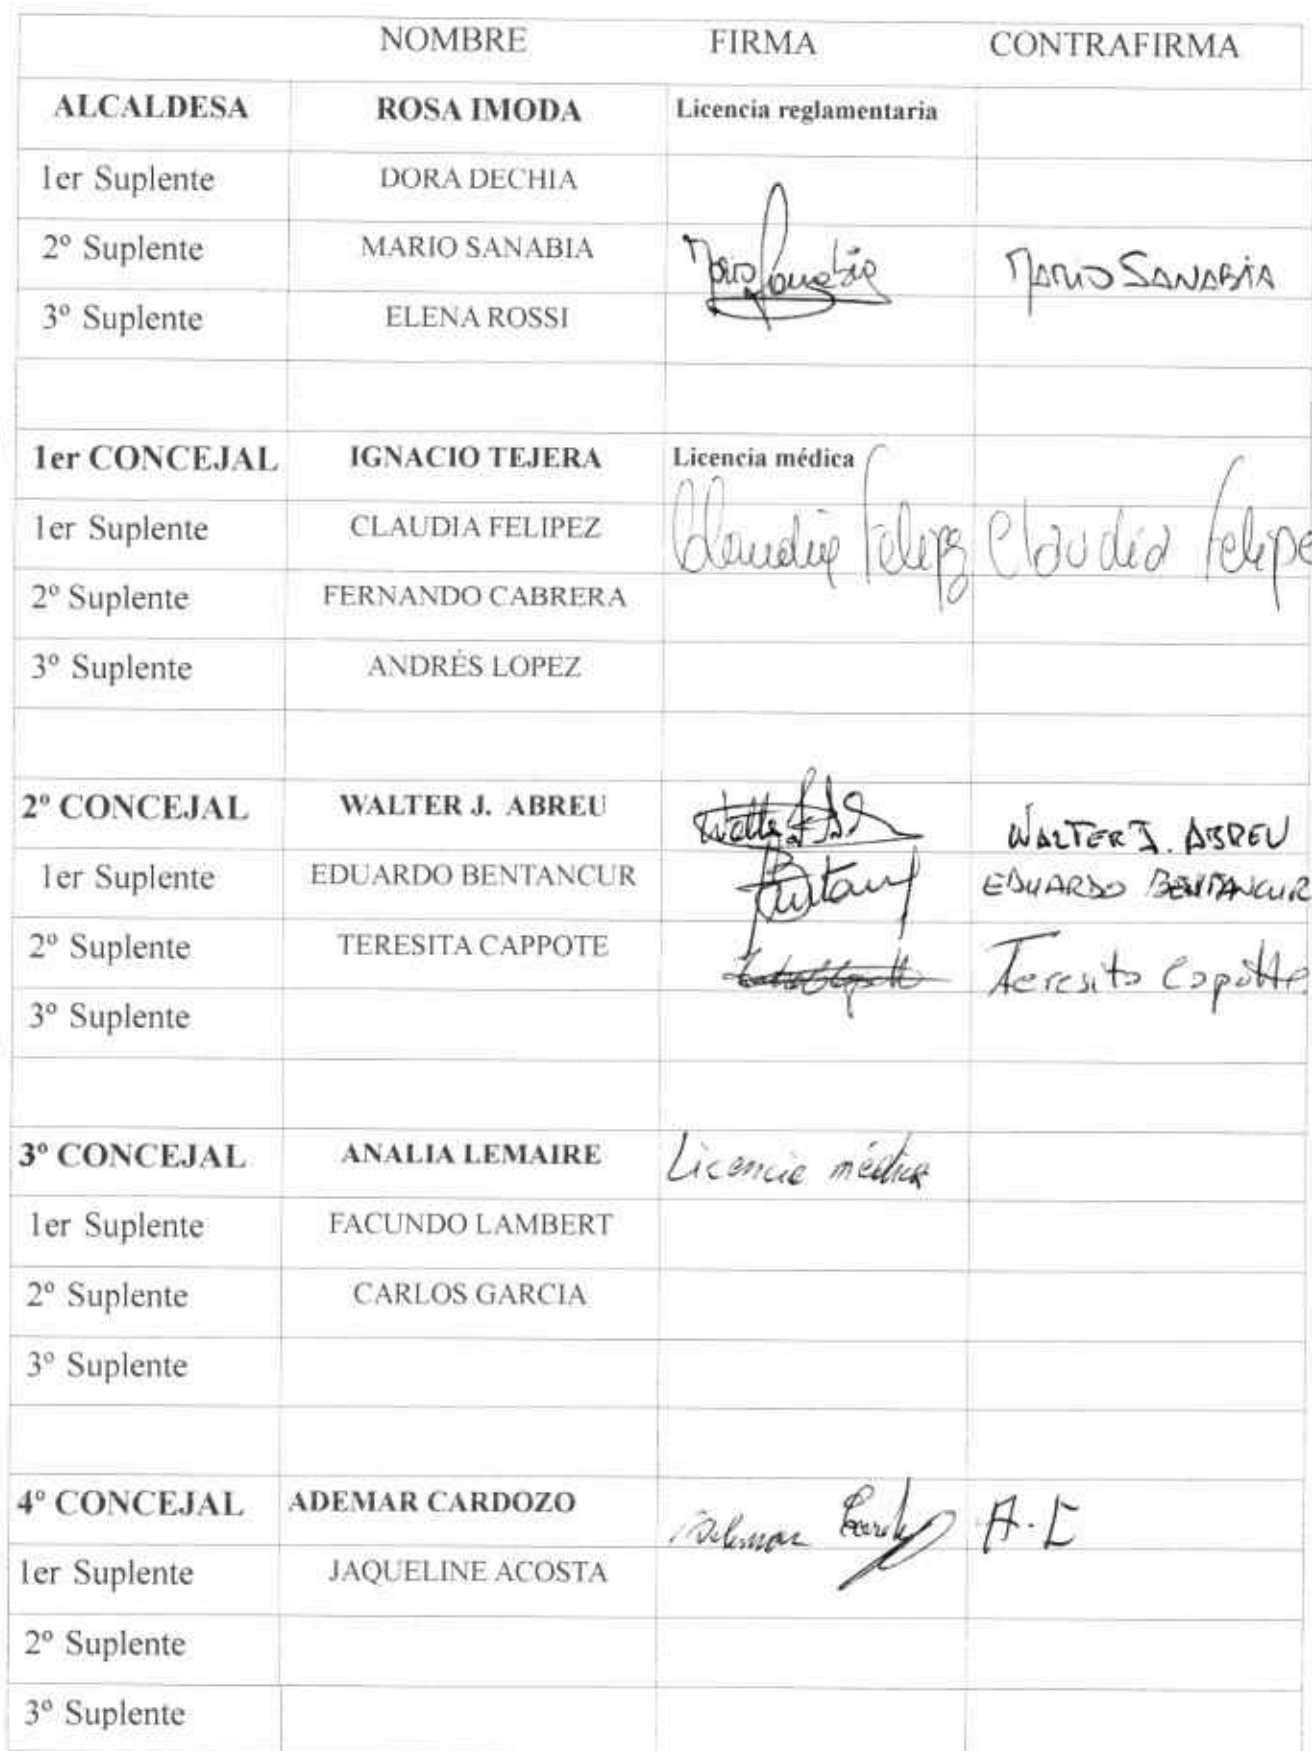 NOMBRE FIRMA CONTRAFIRMA
ALCALDESA ROSA IMODA Licencia reglamentaria
1er Suplente DORA DECHIA
2º Suplente MARIO SANABIA Mario Sanabia MARIO SANABIA
3º Suplente ELENA ROSSI
1er CONCEJAL IGNACIO TEJERA Licencia médica
1er Suplente CLAUDIA FELIPEZ Claudia Felipez Claudia Felipe
2º Suplente FERNANDO CABRERA
3º Suplente ANDRÉS LOPEZ
2º CONCEJAL WALTER J. ABREU WALTER J. ABREU
1er Suplente EDUARDO BENTANCUR EDUARDO BENTANCUR
2º Suplente TERESITA CAPPOTE Teresita Capotte
3º Suplente
3º CONCEJAL ANALIA LEMAIRE Licencia médica
1er Suplente FACUNDO LAMBERT
2º Suplente CARLOS GARCIA
3º Suplente
4º CONCEJAL ADEMAR CARDOZO A.C
1er Suplente JAQUELINE ACOSTA
2º Suplente
3º Suplente